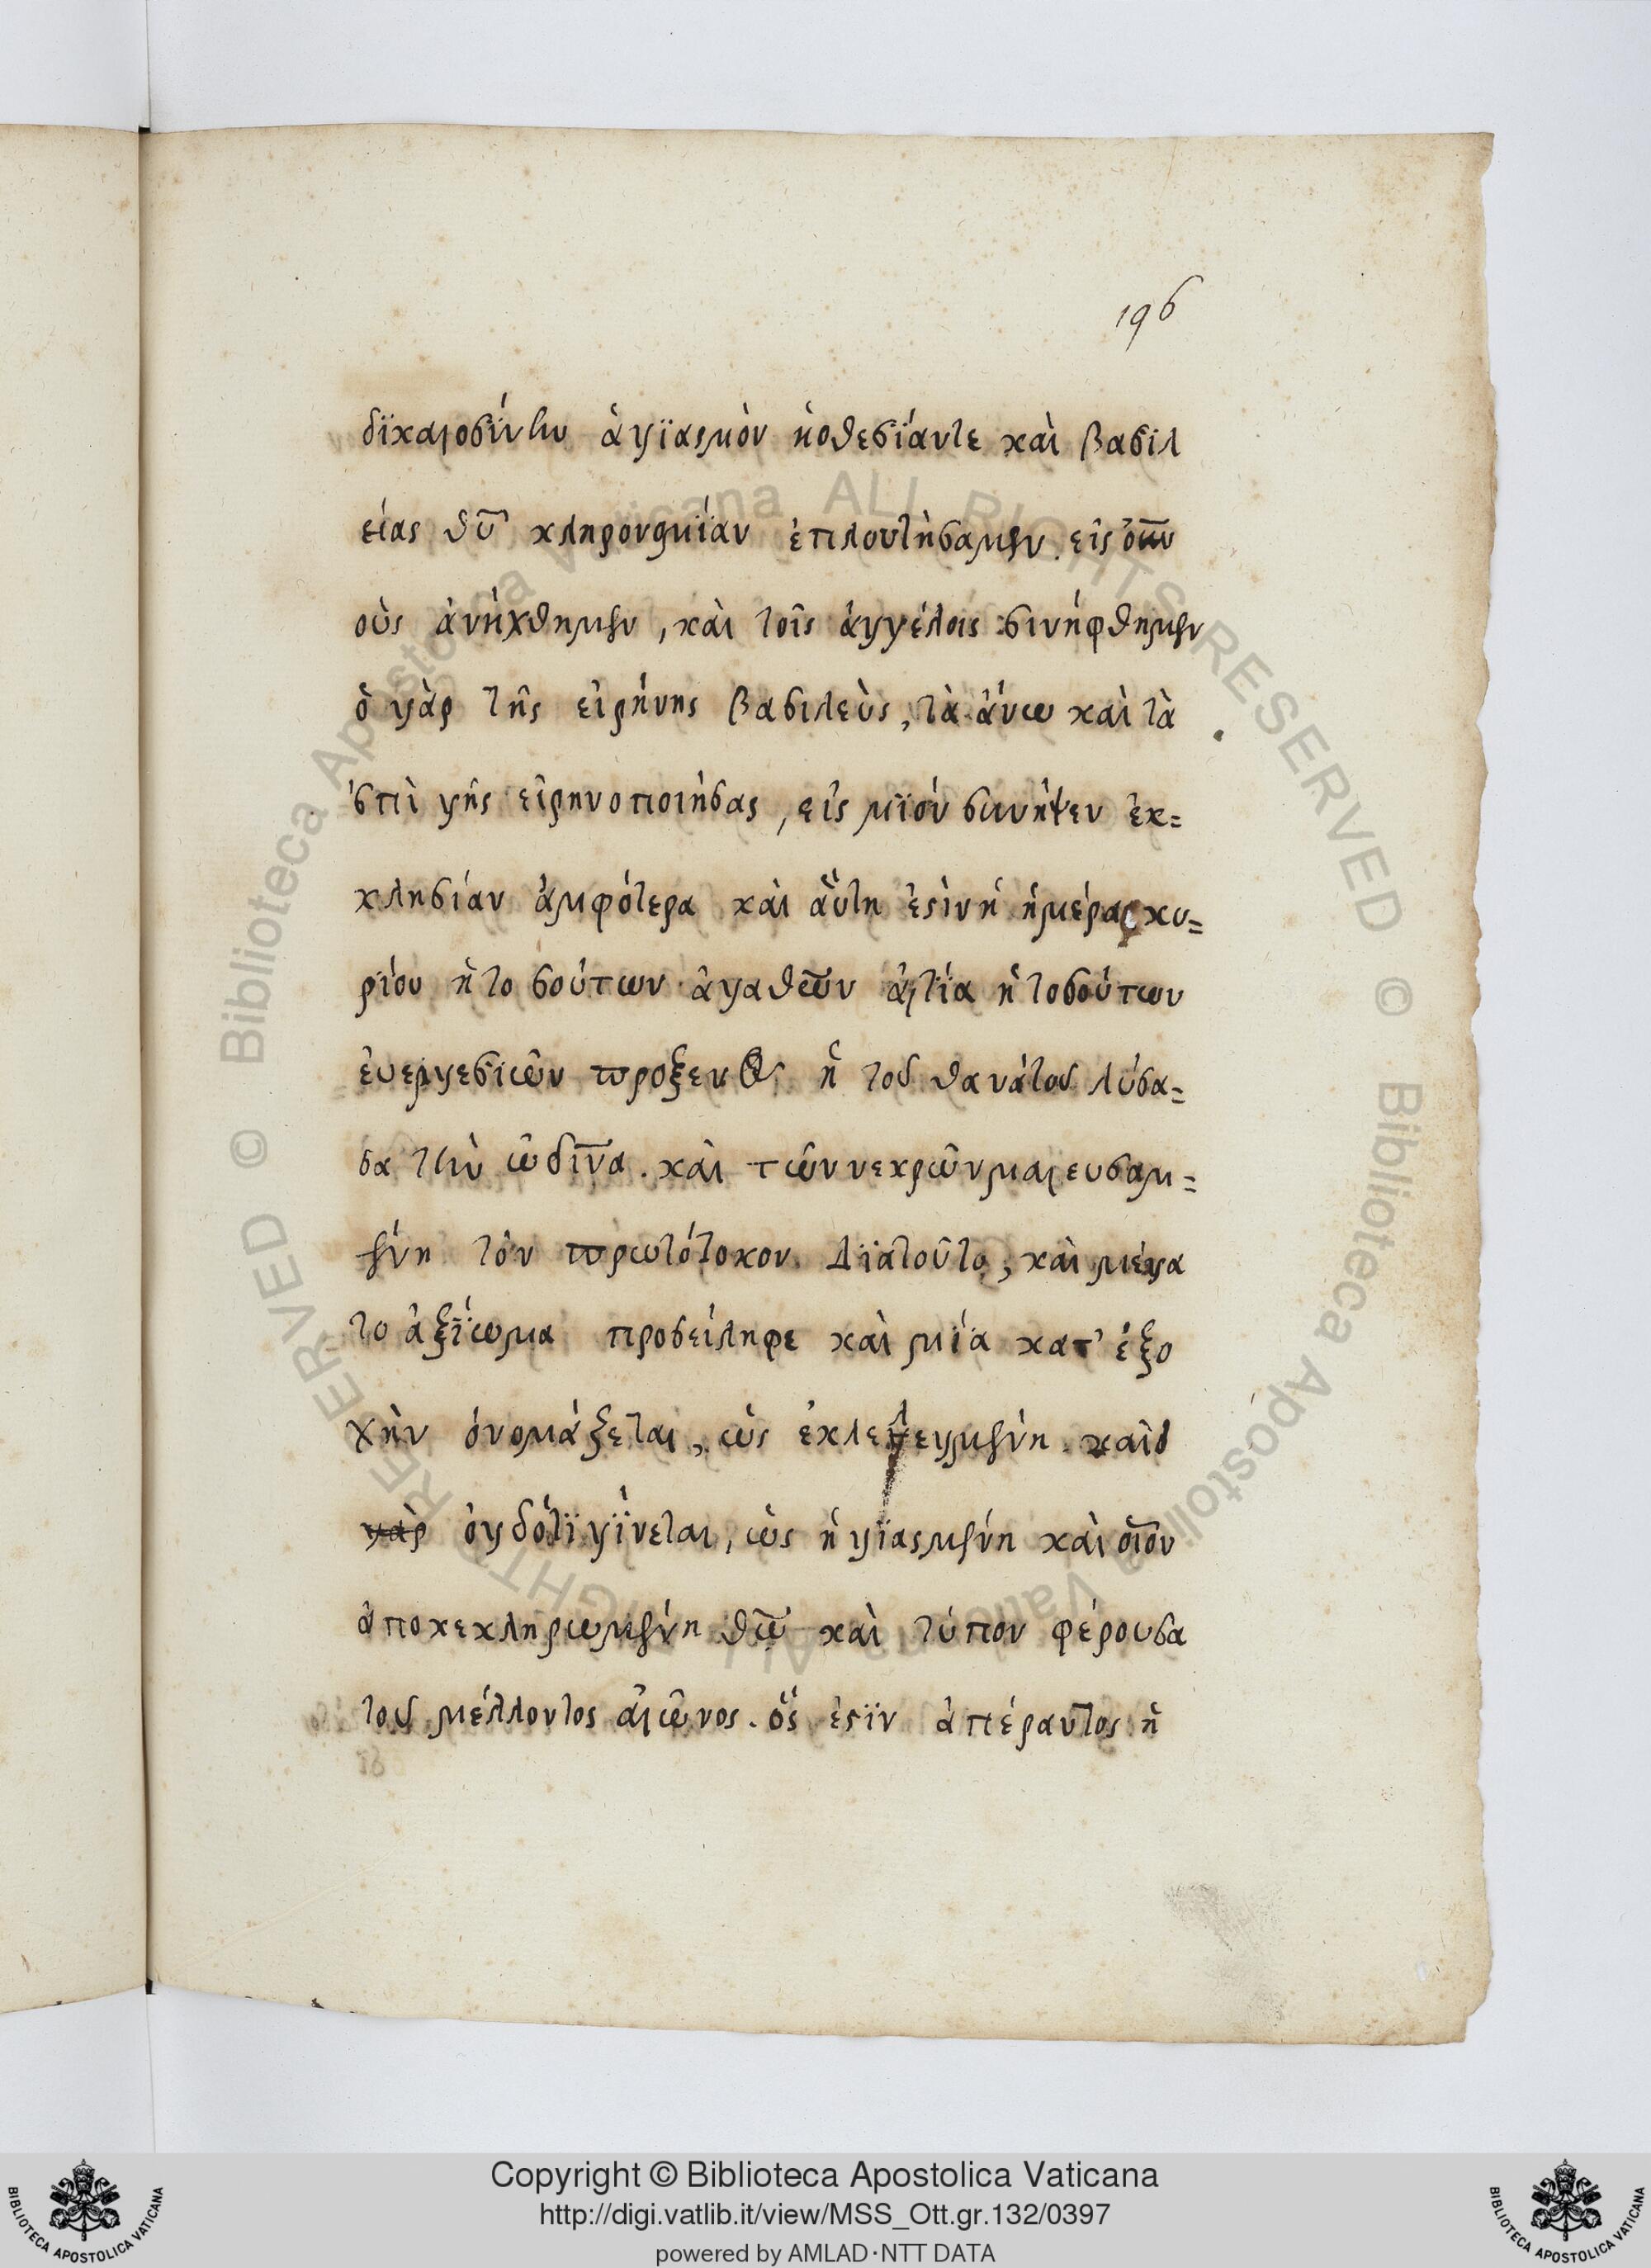 196
δϊκαιοσΰνην ἁγϊασμὸν ὑοθεσίαντε καὶ βασιλ
είας θῦ κληρονομΐαν ἐπλουτὴσαμεν. εἰς οὐν
οὺς ἀνήχθημεν, καὶ τοῖς ἀγγέλοις σινήφθημεν
ὁ γὰρ τῆς εἰρήνης βασιλεὺς, τὰ ἄνω καὶ τὰ
ἐπὶ γῆς εἰρηνοποιήσας, εἰς μϊόν συνήψεν ἐκ=
κλησίαν ἀμφότερα καὶ αὕτη ἐστὶν ἡ ἡμέρα κυ=
ρίου ἡ τοσούτων ἀγαθῶν αἰτία ἡ τοσούτων
ἐυεργεσιῶν προξενος ἡ τοῦ θανάτου λύσα=
σα τὴν ὠδῖνα. καὶ τῶν νεκρῶν μαιευσαμ=
ένη τὸν πρωτότοκον. Διατοῦτο, καὶ μέγα
το ἀξΐωμα προσείληφε καὶ μΐα κατ' ἐξο
χὴν ὀνομάξεται, ὡς ἐκλελεγμένη. καὶ ὁ
γὰρ ὀγδότϊ γΐνεται, ὡς ἡγϊασμένη καὶ οἷον
ἀποκεκληρωμένη θῶ καὶ τύπον φέρουσα
τοῦ μέλλοντος αἰῶνος. ὅς ἐστϊν ἀπέραντος ἡ
Copyright © Biblioteca Apostolica Vaticana
http://digi.vatlib.it/view/MSS_Ott.gr.132/0397
powered by AMLAD·NTT DATA
BIBLIOTECA APOSTOLICA VATICANA
BIBLIOTECA APOSTOLICA VATICANA
© Biblioteca Apostolica Vaticana ALL RIGHTS RESERVED © Biblioteca Apostolica Vaticana ALL RIGHTS RESERVED